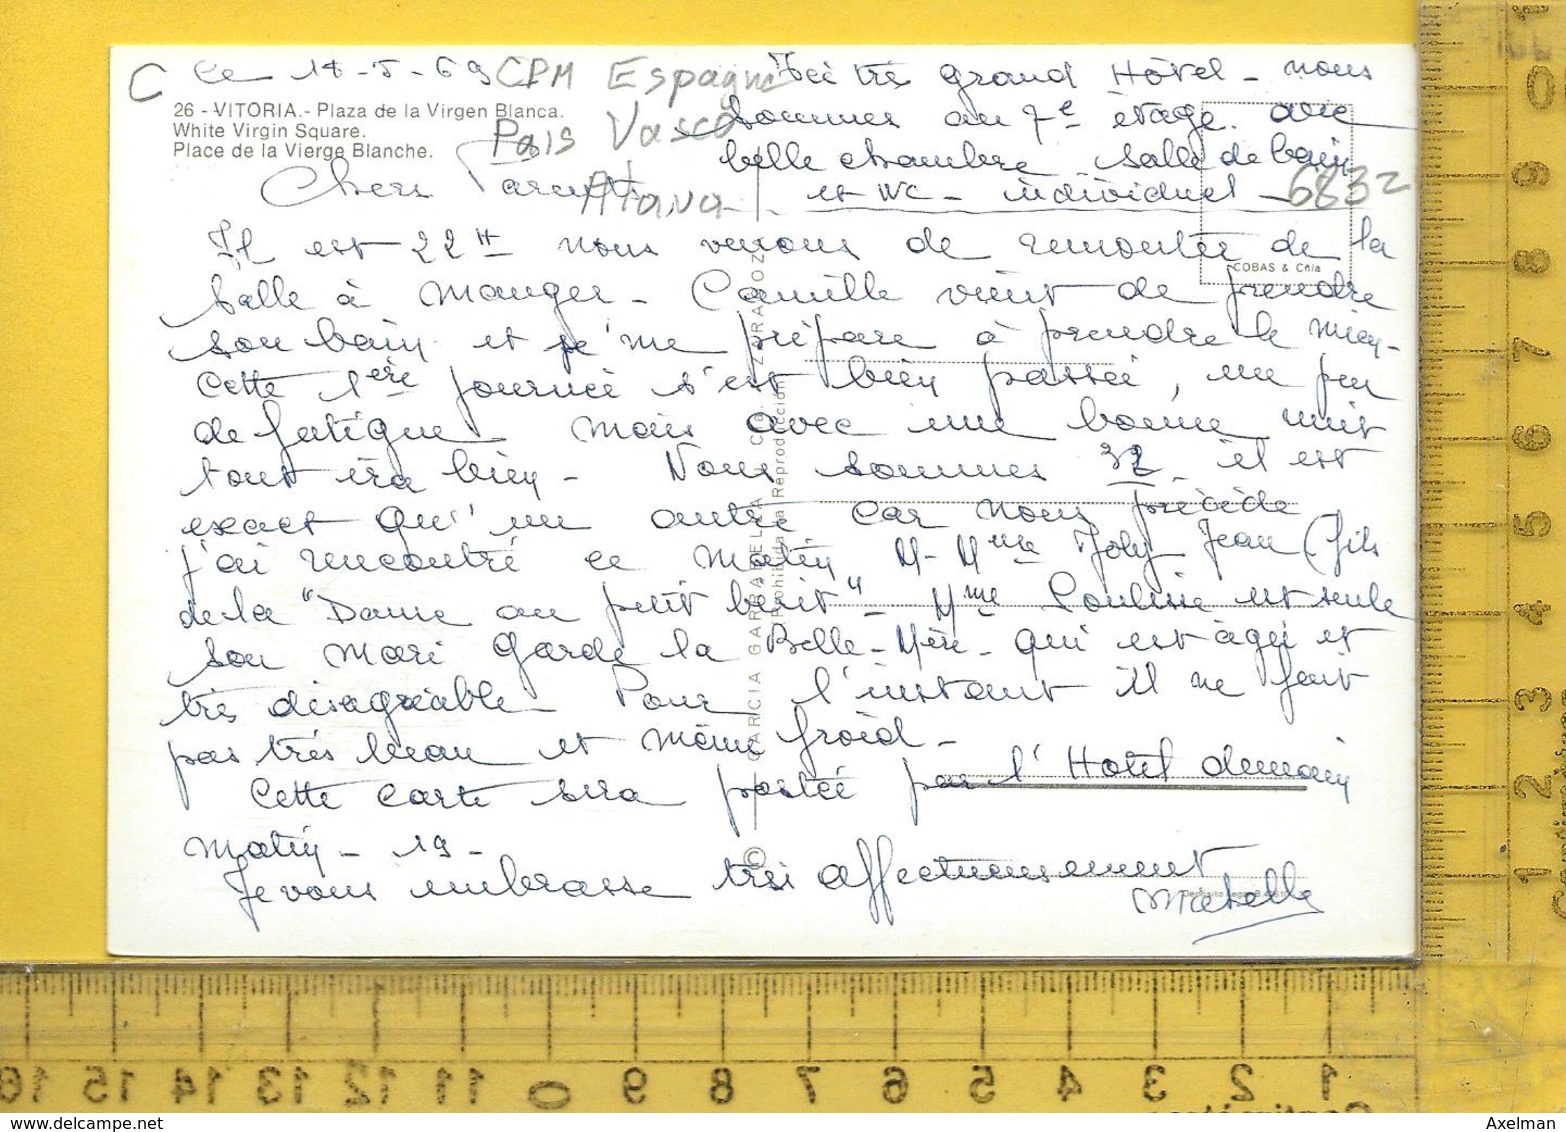 C Le 18-5-69 CPM Espagne
26 - VITORIA.- Plaza de la Virgen Blanca.
White Virgin Square.
Place de la Vierge Blanche.
Pais Vasco
Alava
6832
Ici très grand Hôtel - nous
sommes au 7e étage. avec
belle chambre salle de bain
et WC - individuel -
COBAS & Chla
Chers Parents
Il est 22H nous venons de remonter de la
salle à manger - Camille vient de prendre
son bain et je me prépare à prendre le mien -
Cette 1ère journée s'est bien passée, un peu
de fatigue mais avec une bonne nuit
tout ira bien - Nous sommes 32 il est
exact qu'un autre car nous précède
j'ai rencontré ce matin M - Mme Joly Jean (fils
de la "Dame au petit béret" - Mme Poulisse est seule
son mari garde la Belle-Mère - qui est âgée et
très désagréable - Pour l'instant il ne fait
pas très beau et même froid -
Cette carte sera postée par l'Hotel demain
matin - 19 -
Je vous embrasse très affectueusement
© GARCIA GARRABELLA Y Cia. ZARAGOZA
Prohibida la Reproducción
16 15 14 13 12 11 0 9 8 7 6 5 4 3 2 1
0 9 8 7 6 5 4 3 2 1
Axelman